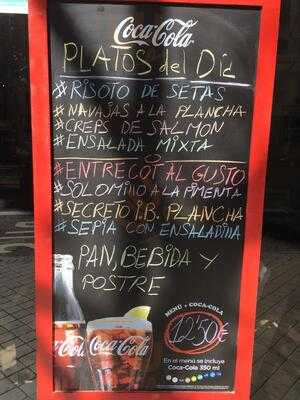 Coca-Cola
PLATOS del Dia
#RISOTO DE SETAS
#NAVAJAS A LA PLANCHA
#CREPS DE SALMON
#ENSALADA MIXTA
O
#ENTRECOT AL GUSTO
#SOLOMINO A LA PIMENTA
#SECRETO I.B. PLANCHA
#SEPIA CON ENSALADINA
PAN, BEBIDA Y
POSTRE
MENÚ + COCA-COLA
12'50€
En el menú se incluye
Coca-Cola 350 ml
Coca-Cola
Coca-Cola